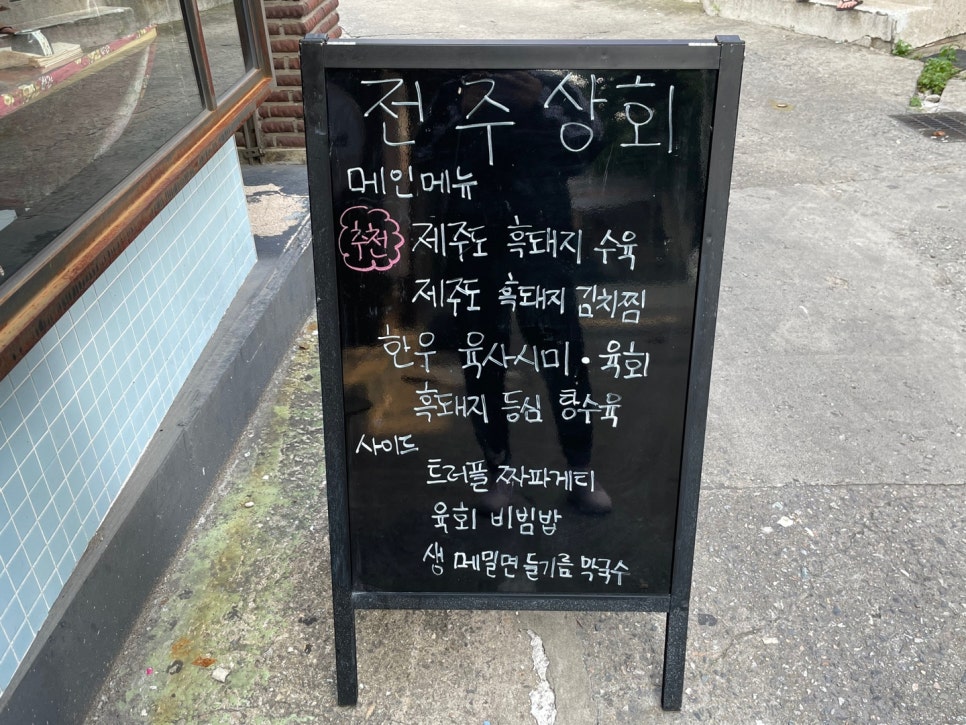 전주상회
메인메뉴
추천 제주도 흑돼지 수육
제주도 흑돼지 김치찜
한우 육사시미·육회
흑돼지 등심 탕수육
사이드
트러플 짜파게티
육회 비빔밥
생 메밀면 들기름 막국수